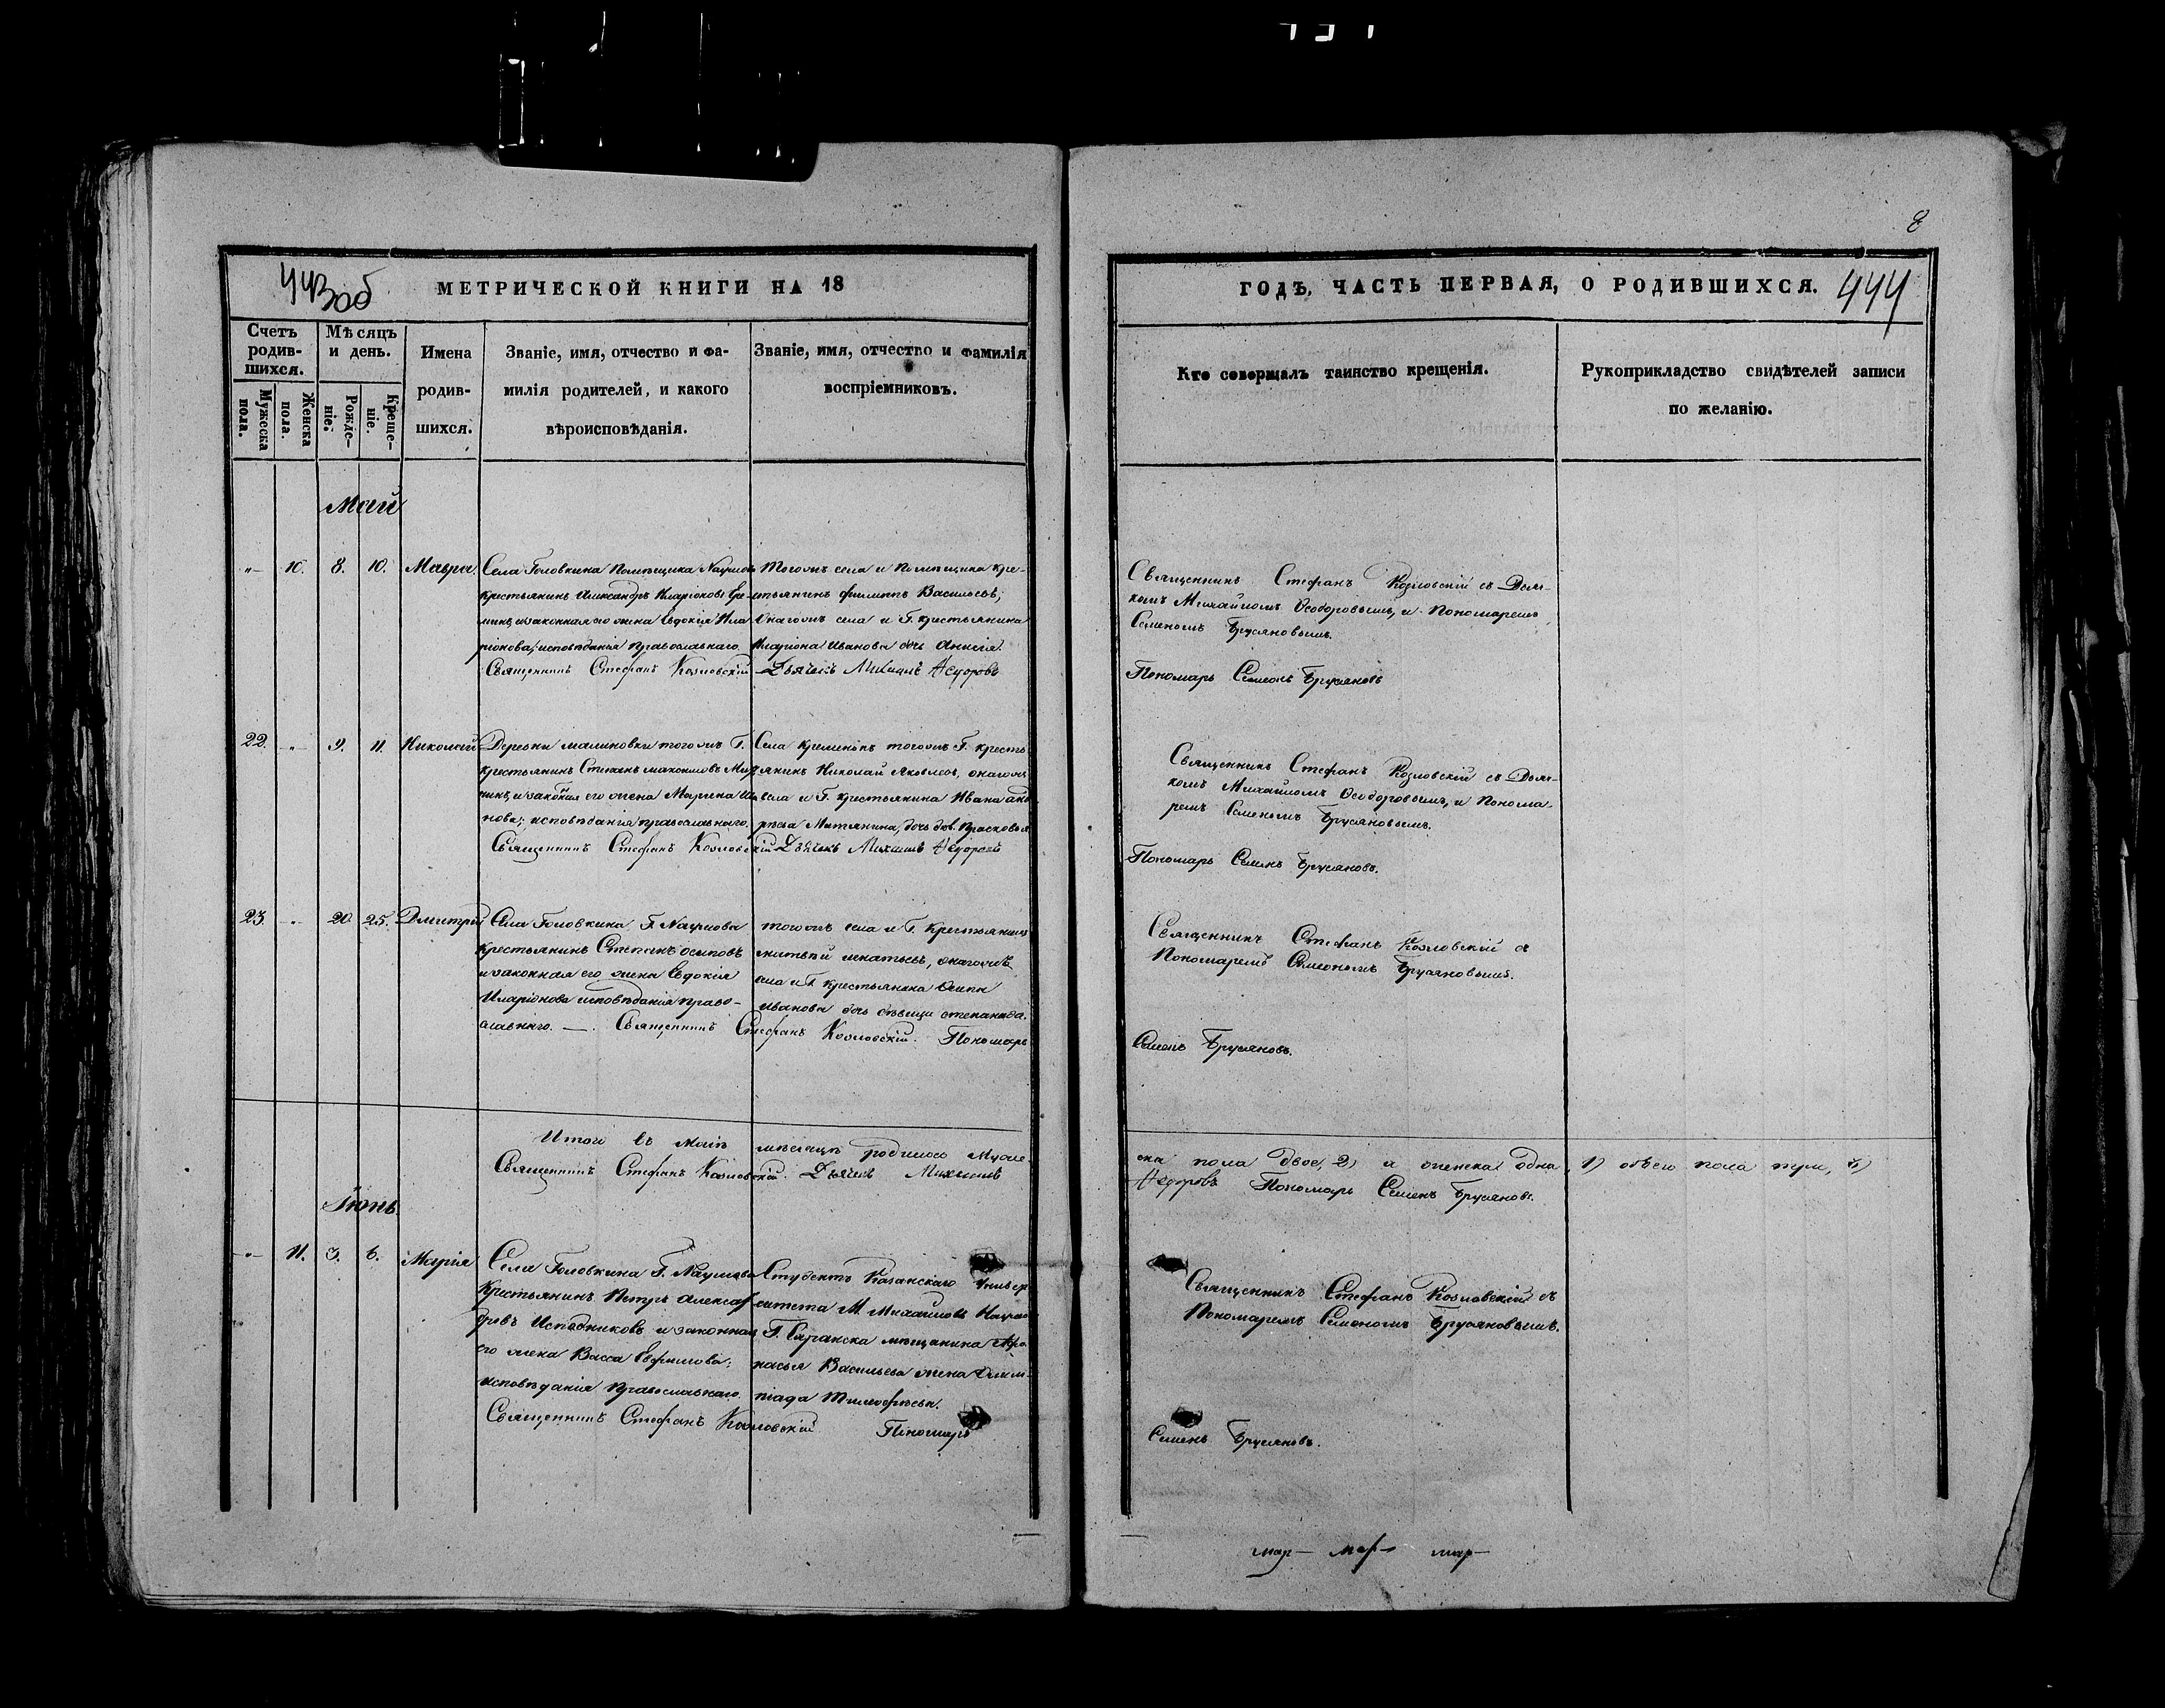 8
443 об
МЕТРИЧЕСКОЙ КНИГИ НА 18
ГОДЪ, ЧАСТЬ ПЕРВАЯ, О РОДИВШИХСЯ.
444
Счетъ родив-шихся.
Мѣсяцъ и день.
Мужеска пола.
Женска пола.
Рожде-ніе.
Креще-ніе.
Имена
родив-
шихся.
Званіе, имя, отчество и фа-
милія родителей, и какого
вѣроисповѣданія.
Званіе, имя, отчество и фамилія
воспріемниковъ.
Кто совершалъ таинство крещенія.
Рукоприкладство свидѣтелей записи
по желанію.
Май
"-
10.
8.
10.
Мавра.
Села Головкина Помѣщика Наумова
крестьянинъ Александръ Иларіоновъ
и законная его жена Евдокія Ила-
ріонова; исповѣданія православнаго.
Священникъ Стефанъ Козловскій
Тогожъ села и Помѣщика кре-
стьянинъ Филиппъ Васильевъ;
Онагожъ села и Г. крестьянина
Иларіона Иванова дочь Анисія.
Дьячекъ Михаилъ Ѳедоровъ
Священникъ Стефанъ Козловскій съ Дьяч-
комъ Михайломъ Ѳеодоровымъ, и Пономаремъ
Семеномъ Брусяновымъ.
Пономарь Семенъ Брусяновъ
22.
-"-
9.
11.
Николай
Деревни малиновки тогожъ Г.
крестьянинъ Степанъ максимовъ
и законная его жена Марина
нова; исповѣданія православнаго.
Священникъ Стефанъ Козловскій
Села кременокъ тогожъ Г. кресть-
янинъ Николай Яковлевъ, онагожъ
села и Г. крестьянина Ивана
Митянина, дочь дѣв. Прасковья
Дьячекъ Михаилъ Ѳедоровъ
Священникъ Стефанъ Козловскій съ Дьяч-
комъ Михайломъ Ѳеодоровымъ, и Понома-
ремъ Семеномъ Брусяновымъ.
Пономарь Семенъ Брусяновъ.
23.
-"-
20.
25.
Дмитрій
Села Головкина Г. Наумова
крестьянинъ Степанъ осиповъ
и законная его жена Евдокія
Иларіонова исповѣданія право-
славнаго. —. Священникъ Стефанъ Козловскій. Пономарь
тогожъ села и Г. Крестьянинъ
игнатьевъ, онагожъ
села и Г. крестьянина Осипа
иванова дочь дѣвица степанида.
Священникъ Стефанъ Козловскій съ
Пономаремъ Семеномъ Брусяновымъ.
Семенъ Брусяновъ.
Итого въ Маіѣ мѣсяцѣ родилось Муже-
ска пола двое, 2) а женска одна 1) обоего пола трое, 3)
Священникъ Стефанъ Козловскій. Дьячекъ Михаилъ
Ѳедоровъ Пономарь Семенъ Брусяновъ.
Іюнь.
-"-
11.
3.
6.
Марія
Села Головкина Г. Наумова
Крестьянинъ Петръ Алексан-
дровъ Исподниковъ и законная
его жена Васса Ефимова;
исповѣданія Православнаго.
Священникъ Стефанъ Козловскій Пономарь
Студентъ Казанскаго Универ-
ситета М. Михайловъ Наумовъ
Г. Саранска мѣщанина Аѳа-
насья Васильева жена Олим-
піада Тимоѳеева.
Священникъ Стефанъ Козловскій съ
Пономаремъ Семеномъ Брусяновымъ.
Семенъ Брусяновъ.
мар— мар— мар—